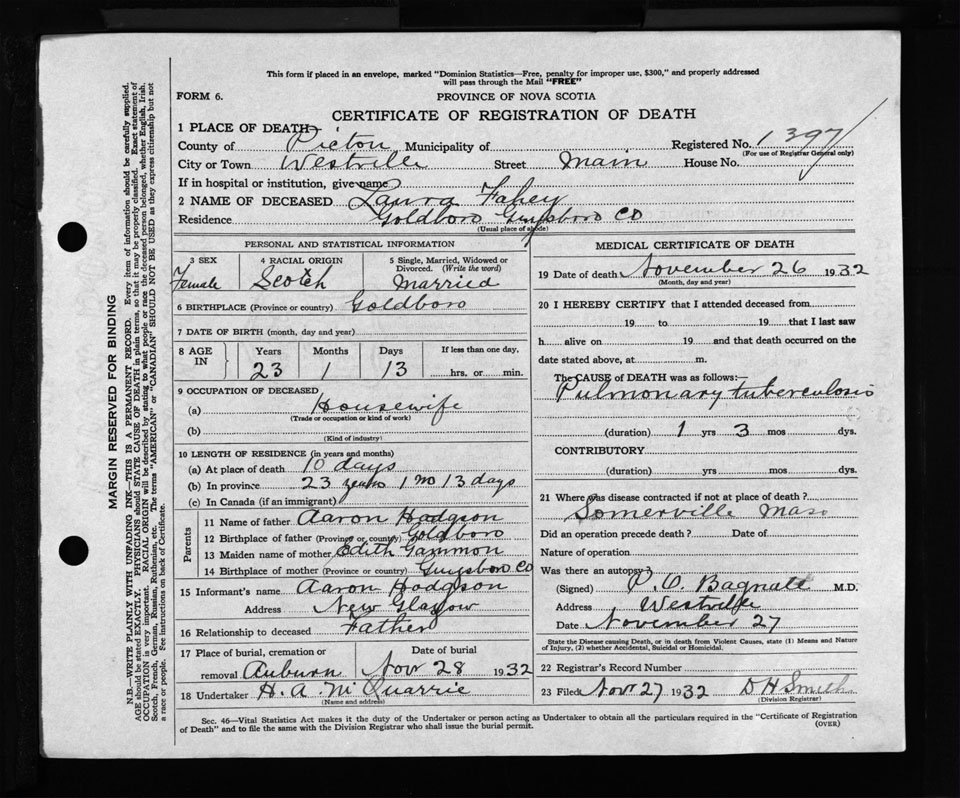 This form if placed in an envelope, marked "Dominion Statistics—Free, penalty for improper use, $300," and properly addressed
will pass through the Mail "FREE"
FORM 6.
PROVINCE OF NOVA SCOTIA
CERTIFICATE OF REGISTRATION OF DEATH
1 PLACE OF DEATH
County of Picton Municipality of Registered No. 1397
(For use of Registrar General only)
City or Town Westville Street Main House No.
If in hospital or institution, give name
2 NAME OF DECEASED Laura Fahey
Residence Goldboro Guysboro Co
(Usual place of abode)
PERSONAL AND STATISTICAL INFORMATION
3 SEX 4 RACIAL ORIGIN 5 Single, Married, Widowed or
Divorced. (Write the word)
Female Scotch Married
6 BIRTHPLACE (Province or country) Goldboro
7 DATE OF BIRTH (month, day and year)
8 AGE IN Years Months Days If less than one day.
23 1 13 hrs. or min.
9 OCCUPATION OF DECEASED
(a) Housewife
(Trade or occupation or kind of work)
(b)
(Kind of industry)
10 LENGTH OF RESIDENCE (in years and months)
(a) At place of death 10 days
(b) In province 23 years 1 mo 13 days
(c) In Canada (if an immigrant)
Parents
11 Name of father Aaron Hodgson
12 Birthplace of father (Province or country) Goldboro
13 Maiden name of mother Edith Gammon
14 Birthplace of mother (Province or country) Guysboro Co
15 Informant's name Aaron Hodgson
Address New Glasgow
16 Relationship to deceased Father
17 Place of burial, cremation or Date of burial
removal Auburn Nov 28 1932
18 Undertaker H. A. McQuarrie
(Name and address)
MEDICAL CERTIFICATE OF DEATH
19 Date of death November 26 1932
(Month, day and year)
20 I HEREBY CERTIFY that I attended deceased from
19 to 19 that I last saw
h alive on 19 and that death occurred on the
date stated above, at m.
The CAUSE of DEATH was as follows:—
Pulmonary tuberculosis
(duration) 1 yrs 3 mos dys.
CONTRIBUTORY
(duration) yrs mos dys.
21 Where was disease contracted if not at place of death?
Somerville Mass
Did an operation precede death? Date of
Nature of operation
Was there an autopsy?
(Signed) P. O. Bagnall M.D.
Address Westville
Date November 27
State the Disease causing Death, or in death from Violent Causes, state (1) Means and Nature
of Injury, (2) whether Accidental, Suicidal or Homicidal.
22 Registrar's Record Number
23 Filed Nov 27 1932 D H Smith
(Division Registrar)
Sec. 46—Vital Statistics Act makes it the duty of the Undertaker or person acting as Undertaker to obtain all the particulars required in the "Certificate of Registration
of Death" and to file the same with the Division Registrar who shall issue the burial permit.
(OVER)
MARGIN RESERVED FOR BINDING
N.B.—WRITE PLAINLY WITH UNFADING INK—THIS IS A PERMANENT RECORD. Every item of information should be carefully supplied.
AGE should be stated EXACTLY. PHYSICIANS should STATE CAUSE OF DEATH in plain terms, so that it may be properly classified. Exact statement of
OCCUPATION is very important. RACIAL ORIGIN will be described by stating to what people or race the deceased person belonged, whether English, Irish,
Scotch, French, German, Russian, Ruthenian, etc. The terms "AMERICAN" or "CANADIAN" SHOULD NOT BE USED as they express citizenship but not
a race or people. See instructions on back of Certificate.